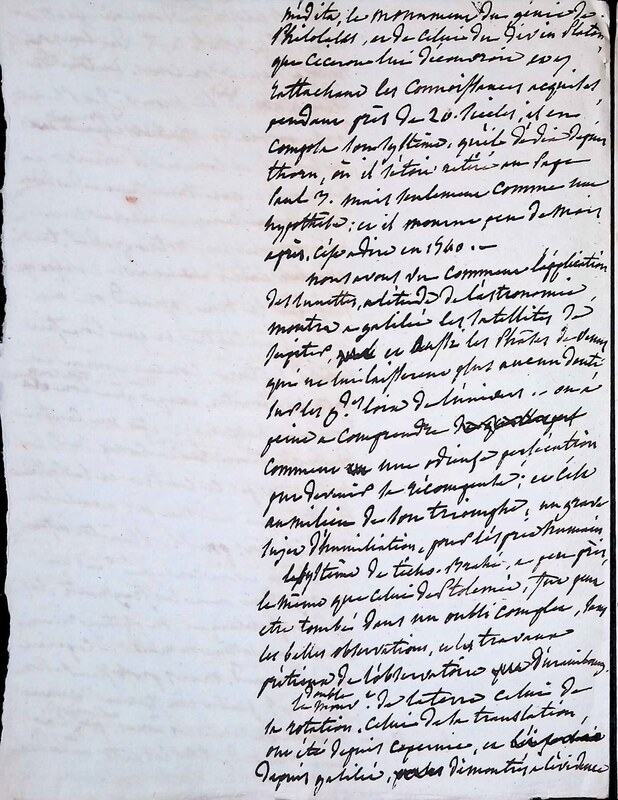 médita, le monument du génie de
Philolas, et de celui du divin Platon
que Ciceron lui découvroit en y
rattachant les connoissances acquises
pendant près de 20 siècles, il en
composa son systême, qu'il dédia depuis
thorn, où il s'étoit retiré au Pape
Paul 3. mais seulement comme une
hypothèse: et il mourut peu de mois
après, c'est à dire en 1540. –
nous avons vu comment l'application
des lunettes, a l'étude de l'astronomie,
montra a galilée les satellites de
Jupiter, et les Phases de Venus
qui ne lui laisserent plus aucun doute
sur les gdes loix de l'univers.. on a
peine a comprendre
comment une odieuse persécution
put devenir sa récompense: et cela
au milieu de son triomphe, un grave
sujet d'humiliation, pour l'esprit humain
le systême de ticho-Braché, a peu près
le même que celui de Ptolemée, fut peut
etre tombé dans un oubli complet, sans
les belles observations, et les travaux
prétieux de l'observatoire d'uranibourg,
le double mouvt de la terre celui de
sa rotation, celui de la translation,
ont été depuis copernic, et
depuis galilée, démontrés a l'évidence